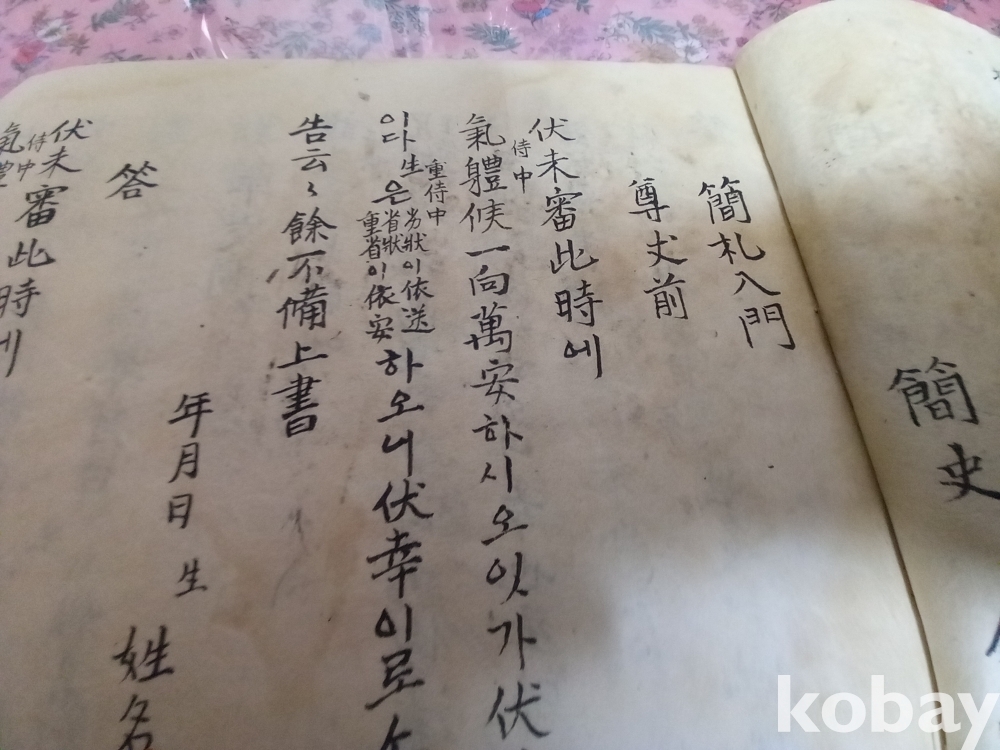 簡史
簡札入門
尊丈前
伏未審此時에
侍中
氣體候一向萬安하시오잇가伏
重侍中
이다生은
劣狀이依送
省狀
重省이依安
하오니伏幸이로소
告云々餘不備上書
年月日 生
姓名
答
伏未審此時에
侍中
氣體
kobay